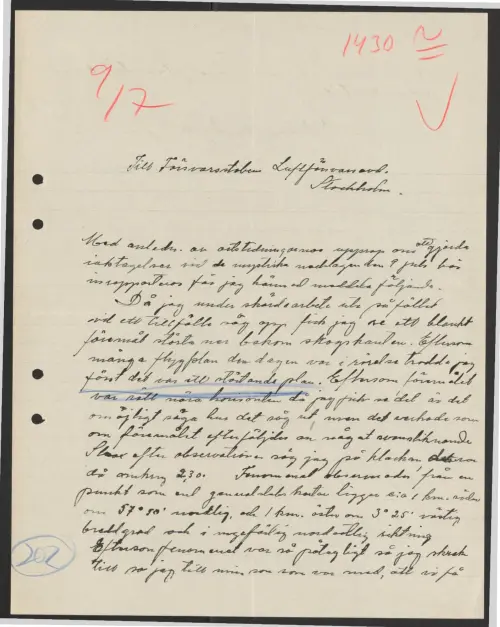 1430
9/7
Till Försvarsstaben Luftförsvarsavd.
Stockholm.
Med anledn. av ortstidningarnas upprop om att gjorda
iakttagelser vid de mystriska nedslagen den 9 juli bör
inrapporteras får jag härmed meddela följande.
Då jag under skördearbete ute på fältet
vid ett tillfälle såg upp fick jag se ett blankt
föremål störta ner bakom skogskanten. Eftersom
många flygplan den dagen var i rörelse trodde jag
först det var ett störtande plan. Eftersom föremålet
var rätt nära horisonten då jag fick se det är det
omöjligt säga hur det såg ut, men det verkade som
om föremålet efterföljdes av något svansliknande
efter observationen såg jag på klockan
då omkring 2,30. Fenomenet observerades från en
punkt som enl generalstabskartan ligger c:a 1 km. söder
om 57° 50' nordlig, och 1 km. öster om 3° 25' västlig
breddgrad och i ungefärlig nordostlig riktning
Eftersom fenomenet var så påtagligt så jag
till så jag, till min son som var med, att vi få
202